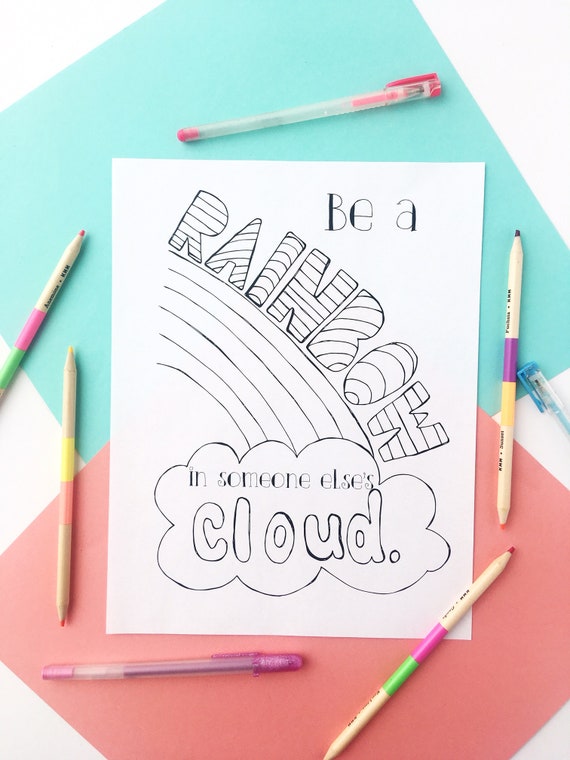 Be a
RAINBOW
in someone else's
cloud.